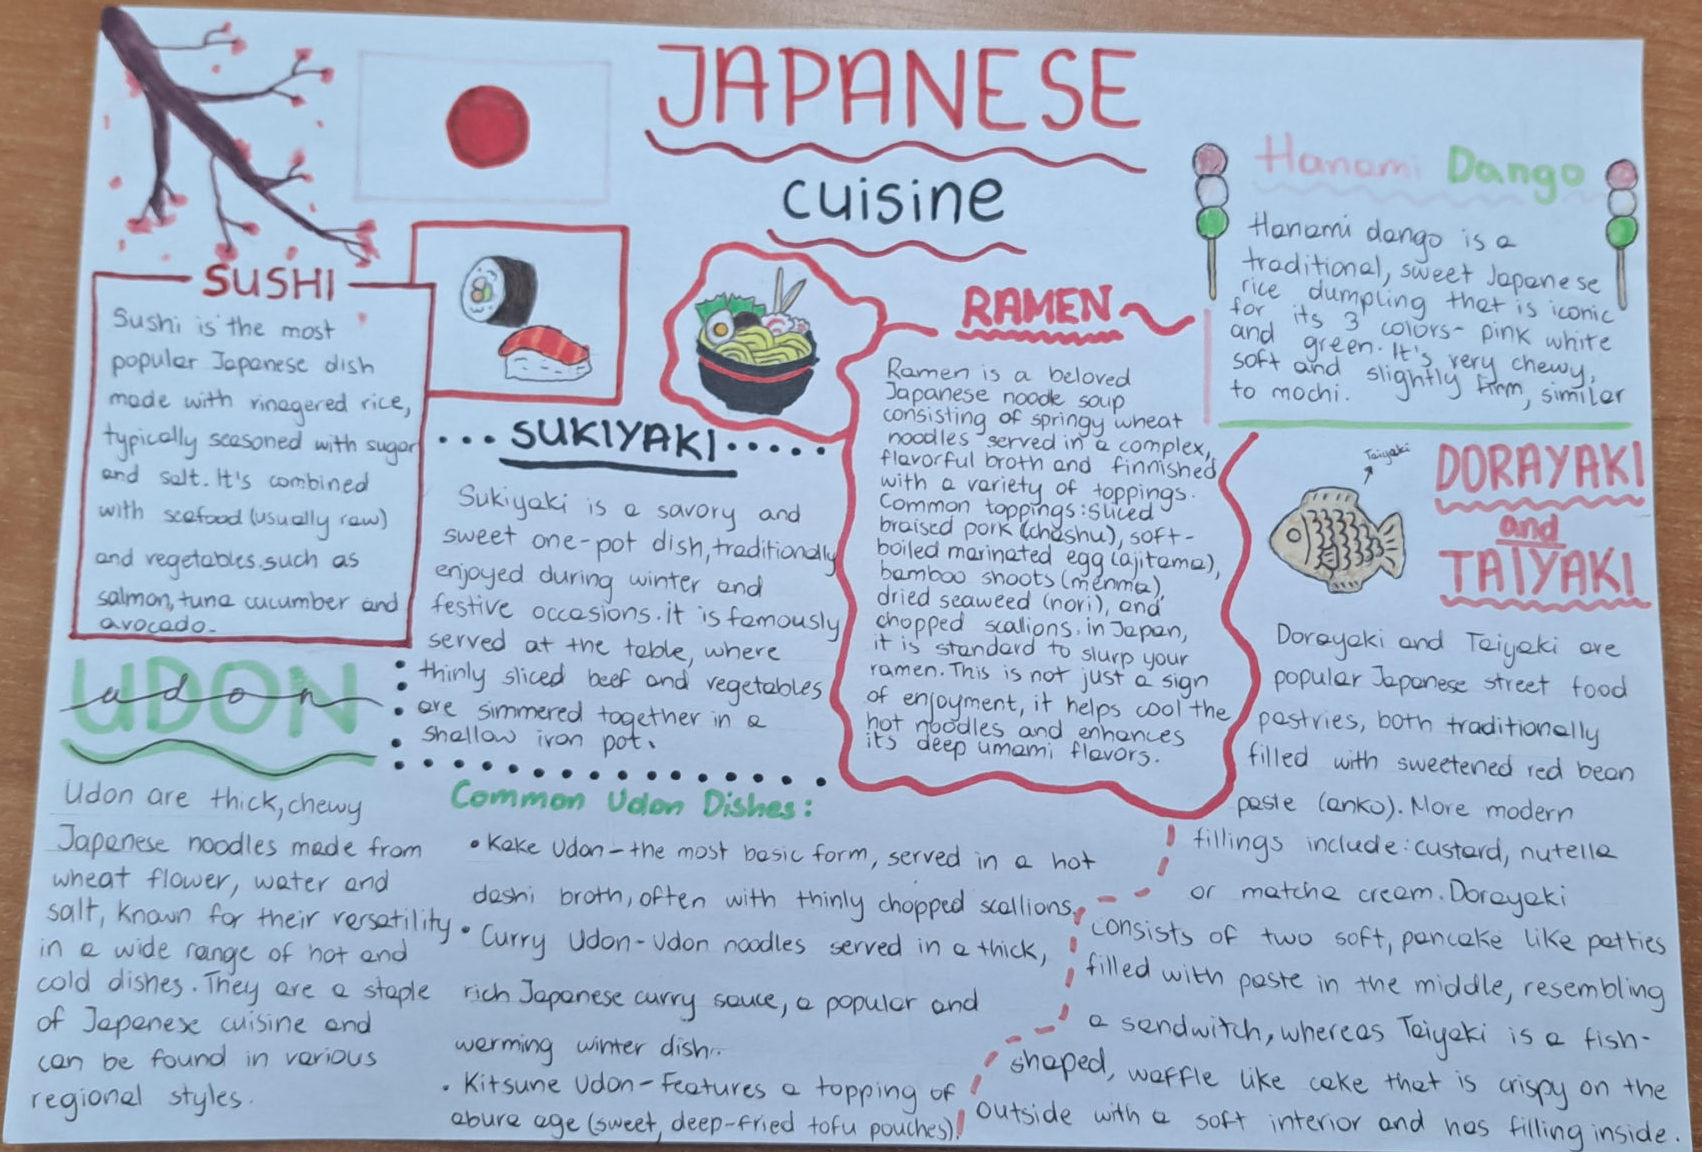 JAPANESE
cuisine
SUSHI
Sushi is the most
popular Japanese dish
made with vinagered rice,
typically seasoned with sugar
and salt. It's combined
with seafood (usually raw)
and vegetables.such as
salmon, tuna cucumber and
avocado.
SUKIYAKI
Sukiyaki is a savory and
sweet one-pot dish, traditionally
enjoyed during winter and
festive occasions. it is famously
served at the table, where
thinly sliced beef and vegetables
are simmered together in a
shallow iron pot.
RAMEN
Ramen is a beloved
Japanese noodle soup
consisting of springy wheat
noodles served in a complex,
flavorful broth and finnished
with a variety of toppings.
Common toppings: sliced
braised pork (chashu), soft-
boiled marinated egg (ajitama),
bamboo shoots (menma),
dried seaweed (nori), and
chopped scallions. in Japan,
it is standard to slurp your
ramen. This is not just a sign
of enjoyment, it helps cool the
hot noodles and enhances
its deep umami flavors.
Hanami Dango
Hanami dango is a
traditional, sweet Japanese
rice dumpling that is iconic
for its 3 colors- pink white
and green. It's very chewy,
soft and slightly firm, similar
to mochi.
Taiyaki
DORAYAKI
and
TAIYAKI
Dorayaki and Taiyaki are
popular Japanese street food
pastries, both traditionally
filled with sweetened red bean
paste (anko). More modern
fillings include: custard, nutella
or matcha cream. Dorayaki
consists of two soft, pancake like patties
filled with paste in the middle, resembling
a sandwitch, whereas Taiyaki is a fish-
shaped, waffle like cake that is crispy on the
outside with a soft interior and has filling inside.
UDON
udon
Udon are thick, chewy
Japanese noodles made from
wheat flower, water and
salt, known for their versatility
in a wide range of hot and
cold dishes. They are a staple
of Japanese cuisine and
can be found in various
regional styles.
Common Udon Dishes:
• Kake Udon – the most basic form, served in a hot
dashi broth, often with thinly chopped scallions.
• Curry Udon - Udon noodles served in a thick,
rich Japanese curry sauce, a popular and
warming winter dish.
• Kitsune Udon – Features a topping of
abura age (sweet, deep-fried tofu pouches)